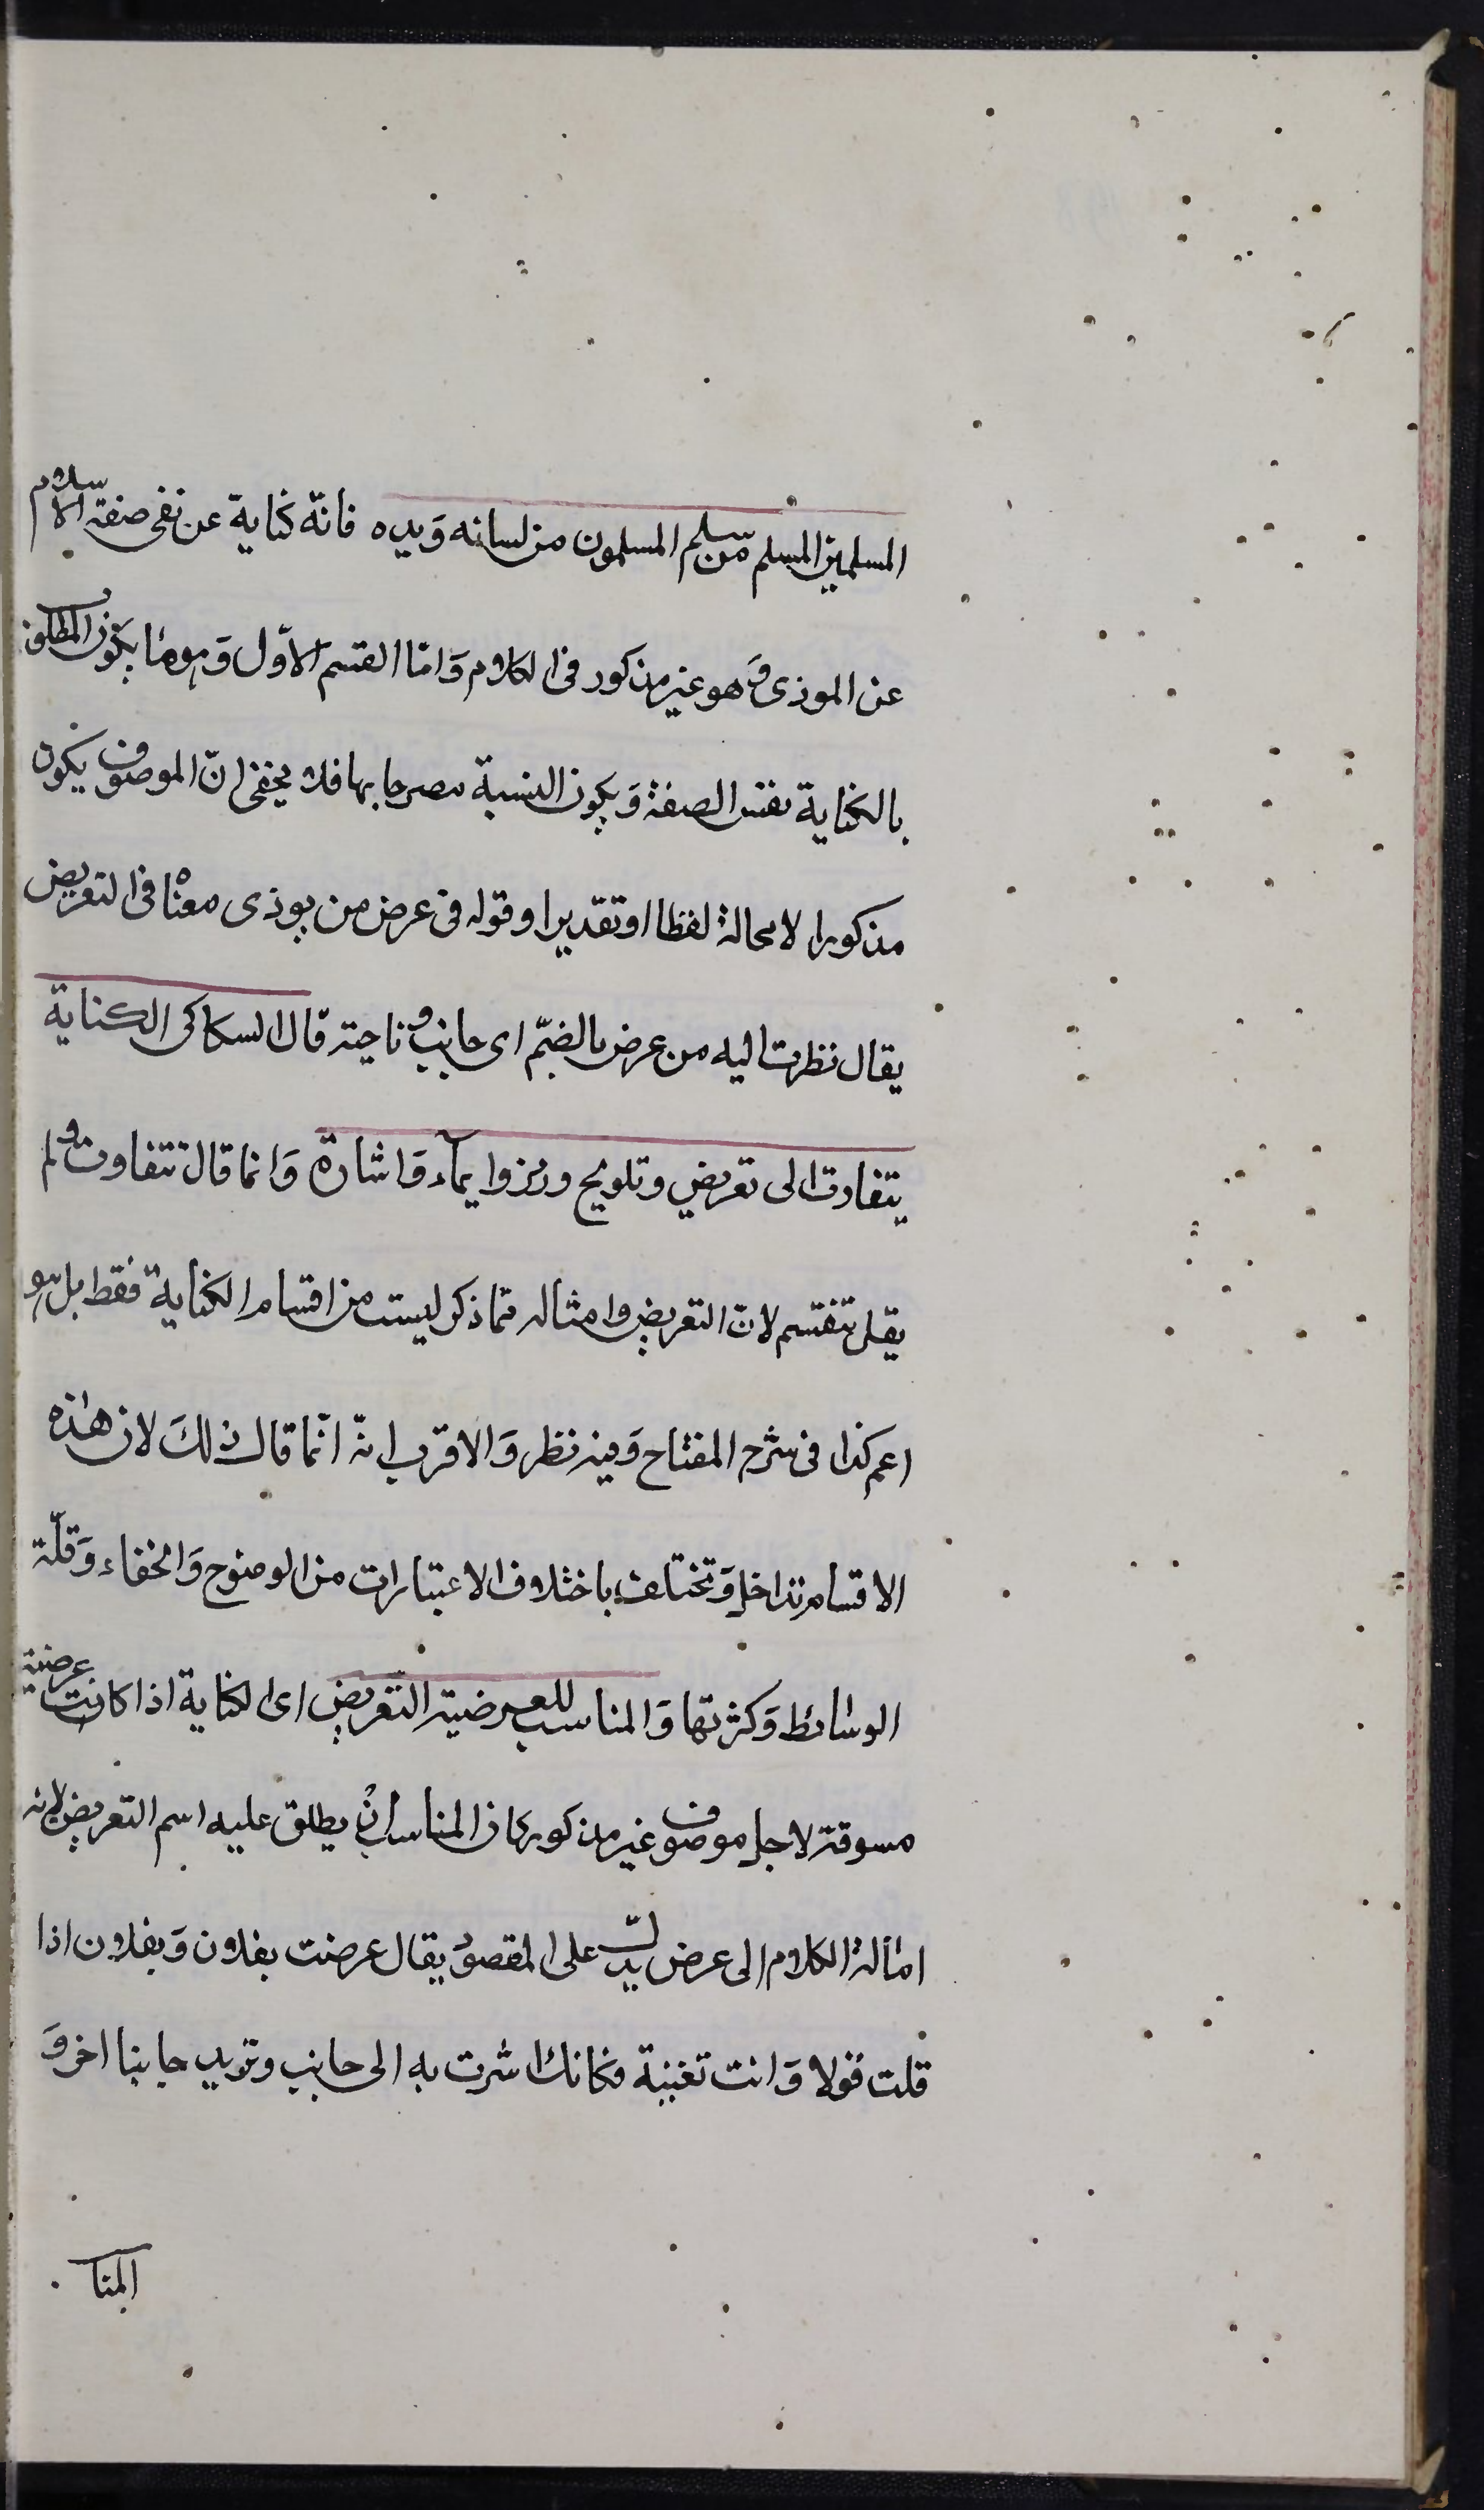 المسلمين المسلم من سلم المسلمون من لسانه وَيده فانّه كناية عن نفى صفة الاسلام
عن الموذى وَهو غير مذكور فى الكلام وَامّا القسم الاوّل وَهو ما يكون المطلوب
بالكناية نفس الصفة وَيكون النسبة مصرحا بها فلا يخفى انّ الموصوف يكون
مذكورا لا محالة لفظا او تقديرا وقوله فى عرض من يوذى معناه فى التعريض
يقال نظرت اليه من عرض بالضمّ اى جانب وناحية قال السكاكى الكناية
يتفاوت الى تعريض وتلويح ورمز وايمآء وَاشارة وَانما قال تتفاوت ولم
يقل تنقسم لان التعريض وامثاله مما ذكر ليست من اقسام الكناية فقط بل هو
اعم كذا فى شرح المفتاح وَفيه نظر وَالاقرب انه انّما قال ذلكَ لان هٰذه
الاقسام تتداخل وَتختلف باختلاف الاعتبارات من الوضوح وَالخفاء وَقلّة
الوسائط وَكثرتها وَالمناسب للعرضية التّعريض اى الكناية اذا كانت عرضية
مسوقة لاجل موصوف غير مذكور كان المناسب ان يطلق عليه اسم التعريض لانه
امالة الكلام الى عرض يدلّ على المقصود يقال عرضت بفلان وَبفلان اذا
قلت قولا وَانت تغنية فكانك اشرت به الى جانب وتريد جانبا اخر وَ
المنا